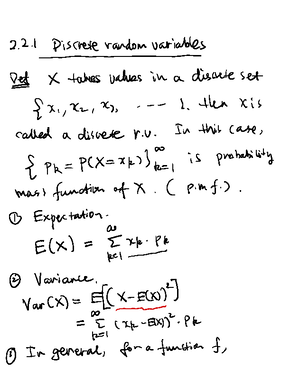 2.2.1 Discrete random variables
Def X takes values in a discrete set
{x₁, x₂, x₃, ---- }. then X is
called a discrete r.v. In this case,
{ Pk = P(X=xk)}∞k=1 is probability
mass function of X. ( p.m.f.).
① Expectation.
E(X) = ∞Σk=1 xk · Pk
② Variance.
Var(X) = E[(X-E(X))²]
= ∞Σk=1 (xk-E(X))² · Pk
③ In general, for a function f,